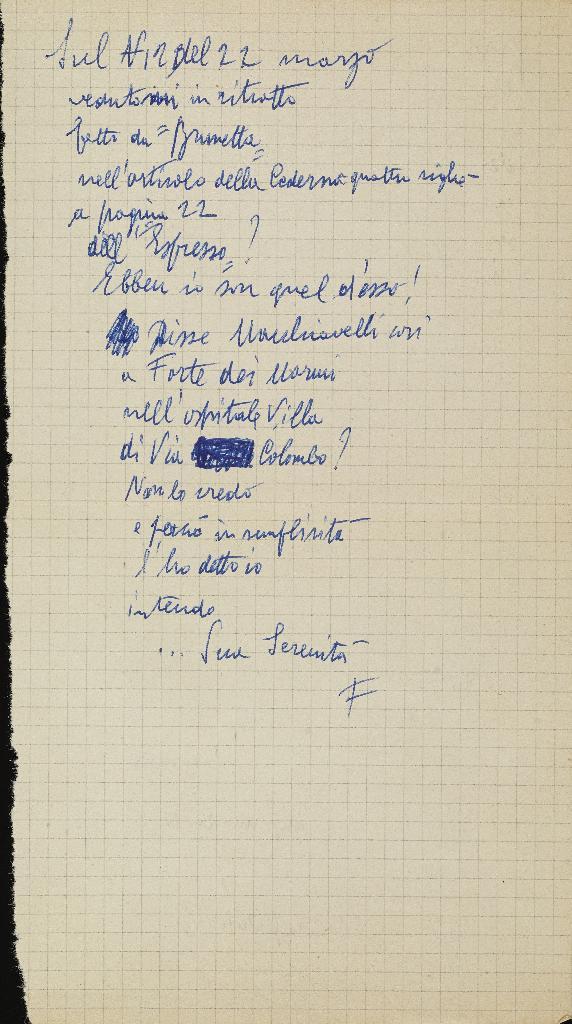 Sul N 12 del 22 marzo
vedutomi in ritratto
fatto da "Brunetta"
nell'articolo della Cederna quattro righe
a pagina 22
dell' "Espresso"?
Ebben io "son quel desso"!
Disse Macchiavelli così
a Forte dei Marmi
nell'ospitale Villa
di Via Colombo?
Non lo credo
e perciò in semplicità
l'ho detto io
intendo
... Sua Serenità
F